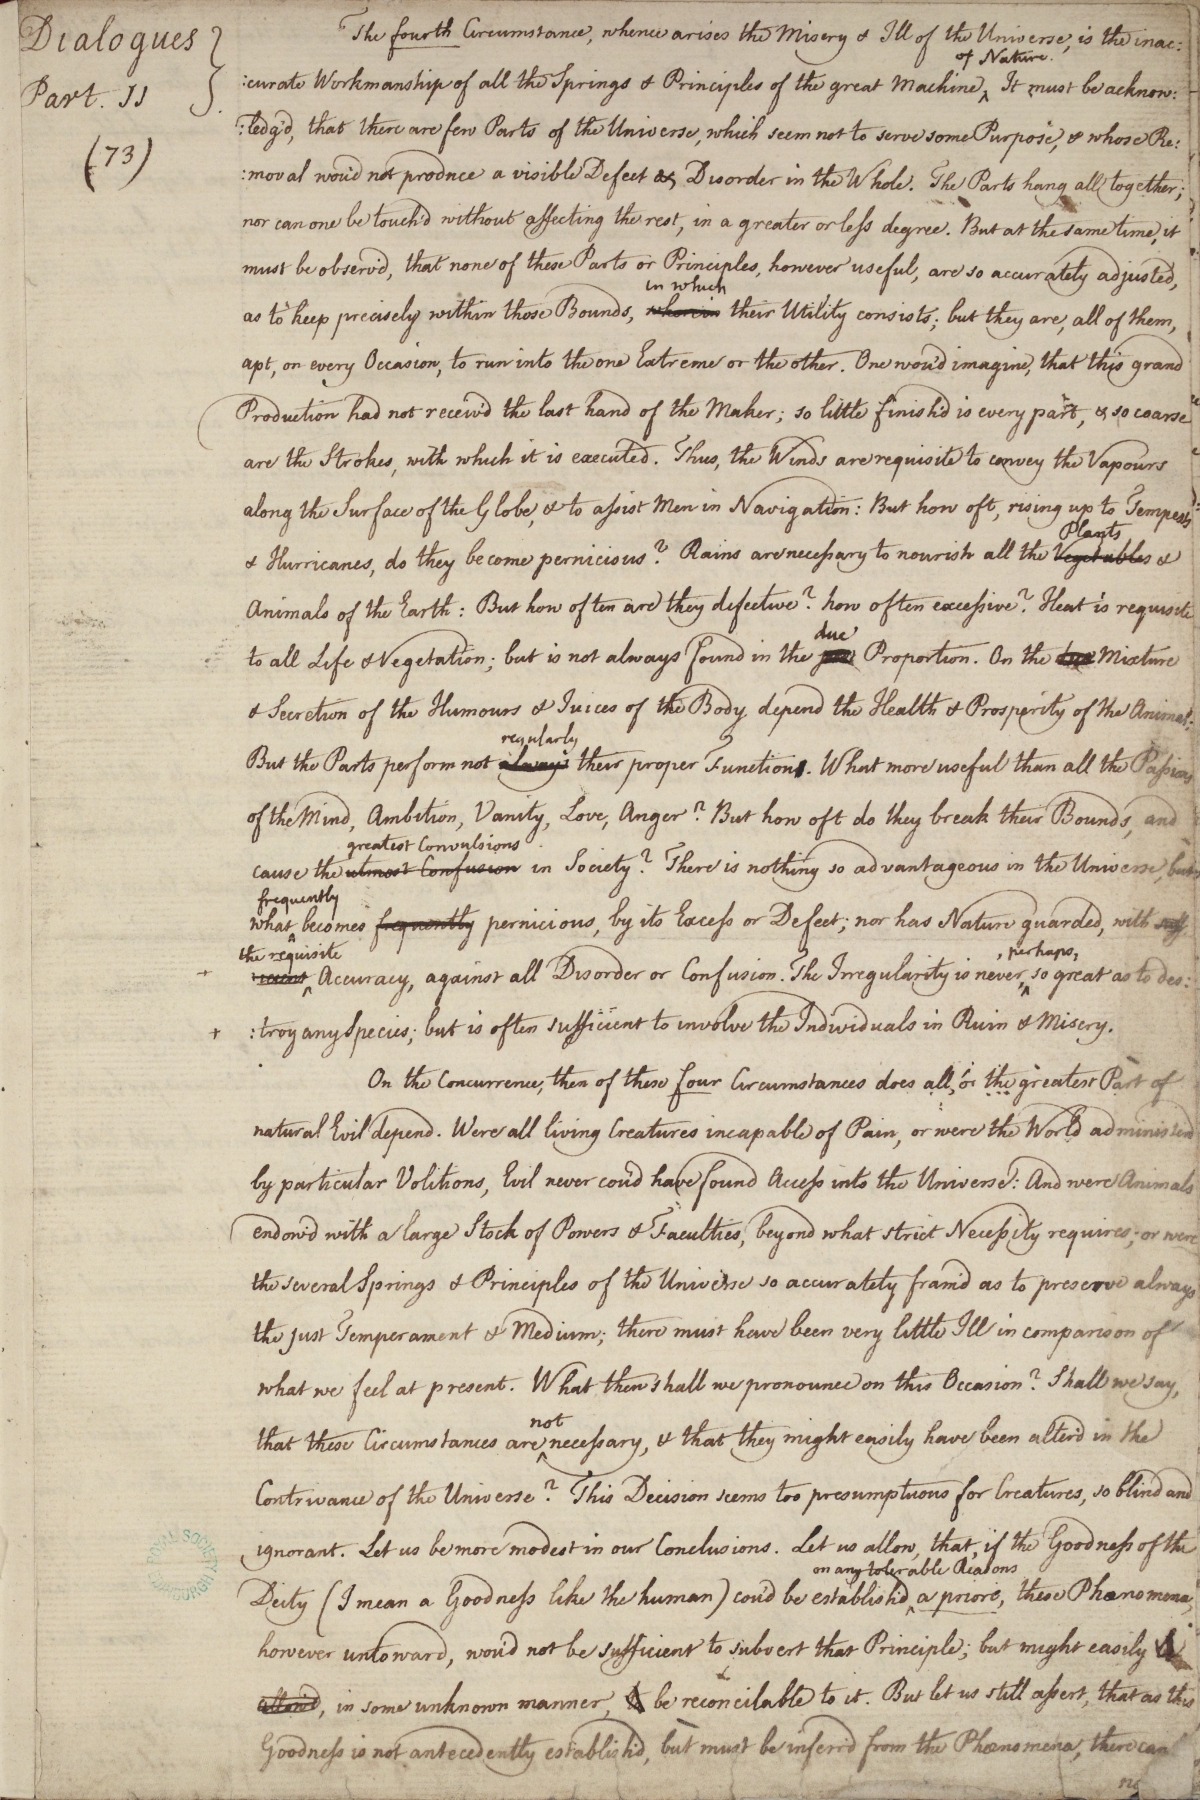 Dialogues
Part. 11
(73)
The fourth Circumstance, whence arises the Misery & Ill of the Universe, is the inac:
of Nature.
:curate Workmanship of all the Springs & Principles of the great Machine ^ It must be acknow:
:ledg'd, that there are few Parts of the Universe, which seem not to serve some Purpose, & whose Re:
:moval wou'd not produce a visible Defect & Disorder in the Whole. The Parts hang all together;
nor can one be touch'd without affecting the rest, in a greater or less degree. But at the same time, it
must be observ'd, that none of these Parts or Principles, however useful, are so accurately adjusted,
in which
as to keep precisely within those Bounds, wherein their Utility consists; but they are, all of them,
apt, on every Occasion, to run into the one Extreme or the other. One wou'd imagine, that this grand
Production had not receiv'd the last hand of the Maker; so little finish'd is every part, & so coarse
are the Strokes, with which it is executed. Thus, the Winds are requisite to convey the Vapours
along the Surface of the Globe, & to assist Men in Navigation: But how oft, rising up to Tempests
Plants
& Hurricanes, do they become pernicious? Rains are necessary to nourish all the Vegetables &
Animals of the Earth: But how often are they defective? how often excessive? Heat is requisite
due
to all Life & Vegetation; but is not always found in the Proportion. On the Mixture
& Secretion of the Humours & Juices of the Body depend the Health & Prosperity of the Animal:
regularly
But the Parts perform not always their proper Function. What more useful than all the Passions
of the Mind, Ambition, Vanity, Love, Anger? But how oft do they break their Bounds, and
greatest Convulsions
cause the utmost Confusion in Society? There is nothing so advantageous in the Universe, but
frequently
what ^ becomes frequently pernicious, by its Excess or Defect; nor has Nature guarded, with
the requisite , perhaps,
^ Accuracy, against all Disorder or Confusion. The Irregularity is never ^ so great as to des:
:troy any Species; but is often sufficient to involve the Individuals in Ruin & Misery.
On the Concurrence, then of these four Circumstances does all, or the greatest Part of
natural Evil depend. Were all living Creatures incapable of Pain, or were the World administerd
by particular Volitions, Evil never cou'd have found Access into the Universe: And were Animals
endow'd with a large Stock of Powers & Faculties, beyond what strict Necessity requires; or were
the several Springs & Principles of the Universe so accurately fram'd as to preserve always
the just Temperament & Medium; there must have been very little Ill in comparison of
what we feel at present. What then shall we pronounce on this Occasion? Shall we say,
not
that these Circumstances are ^ necessary, & that they might easily have been alter'd in the
Contrivance of the Universe? This Decision seems too presumptuous for Creatures, so blind and
ignorant. Let us be more modest in our Conclusions. Let us allow, that, if the Goodness of the
on any tolerable Reasons
Deity (I mean a Goodness like the human) cou'd be establish'd ^ a priore, these Phænomena,
however untoward, wou'd not be sufficient to subvert that Principle; but might easily
, in some unknown manner, be reconcilable to it. But let us still assert, that as this
Goodness is not antecedently establish'd, but must be inferr'd from the Phænomena, there can
no
ROYAL SOCIETY EDINBURGH